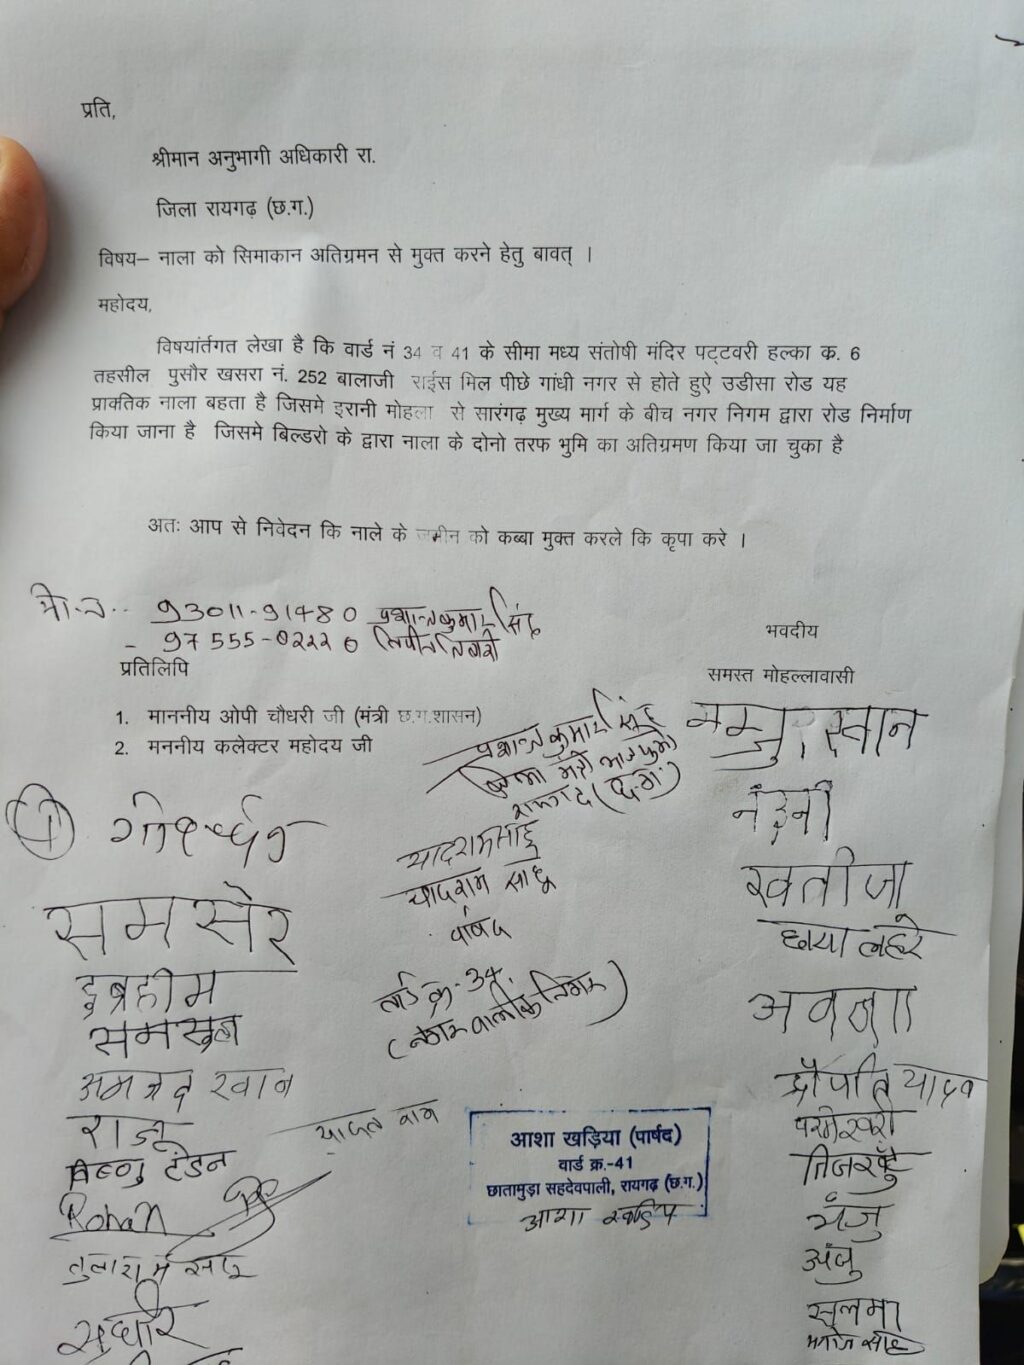 प्रति,
श्रीमान अनुभागी अधिकारी रा.
जिला रायगढ़ (छ.ग.)
विषय– नाला को सिमाकान अतिग्रमन से मुक्त करने हेतु बावत् ।
महोदय,
विषयांर्तगत लेखा है कि वार्ड नं 34 व 41 के सीमा मध्य संतोषी मंदिर पट्टवरी हल्का क. 6
तहसील पुसौर खसरा नं. 252 बालाजी राईस मिल पीछे गांधी नगर से होते हुऐ उडीसा रोड यह
प्राक्तिक नाला बहता है जिसमे इरानी मोहला से सारंगढ़ मुख्य मार्ग के बीच नगर निगम द्वारा रोड निर्माण
किया जाना है जिसमे बिल्डरो के द्वारा नाला के दोनो तरफ भुमि का अतिग्रमण किया जा चुका है
अतः आप से निवेदन कि नाले के जमीन को कब्बा मुक्त करले कि कृपा करे ।
मो.न.. 93011-91480 प्रशान्त कुमार सिंह
- 97555-02220
भवदीय
प्रतिलिपि
समस्त मोहल्लावासी
1. माननीय ओपी चौधरी जी (मंत्री छ.ग.शासन)
2. मननीय कलेक्टर महोदय जी
प्रशान्त कुमार सिंह
खान
नंदनी
यादराम साहू
यादराम साहू
पार्षद
खतीजा
छाया लहरे
समसेर
इब्रहीम
वार्ड क्र.-34
अमजद खान
द्रौपति यादव
राजू
परमेश्वरी
विष्णु टंडन
आशा खड़िया (पार्षद)
वार्ड क्र.-41
छातामुड़ा सहदेवपाली, रायगढ़ (छ.ग.)
आशा खड़िया
Rohan
मंजु
अंजु
तुलाराम साहू
सलमा
सुधीर
मनोज साहू